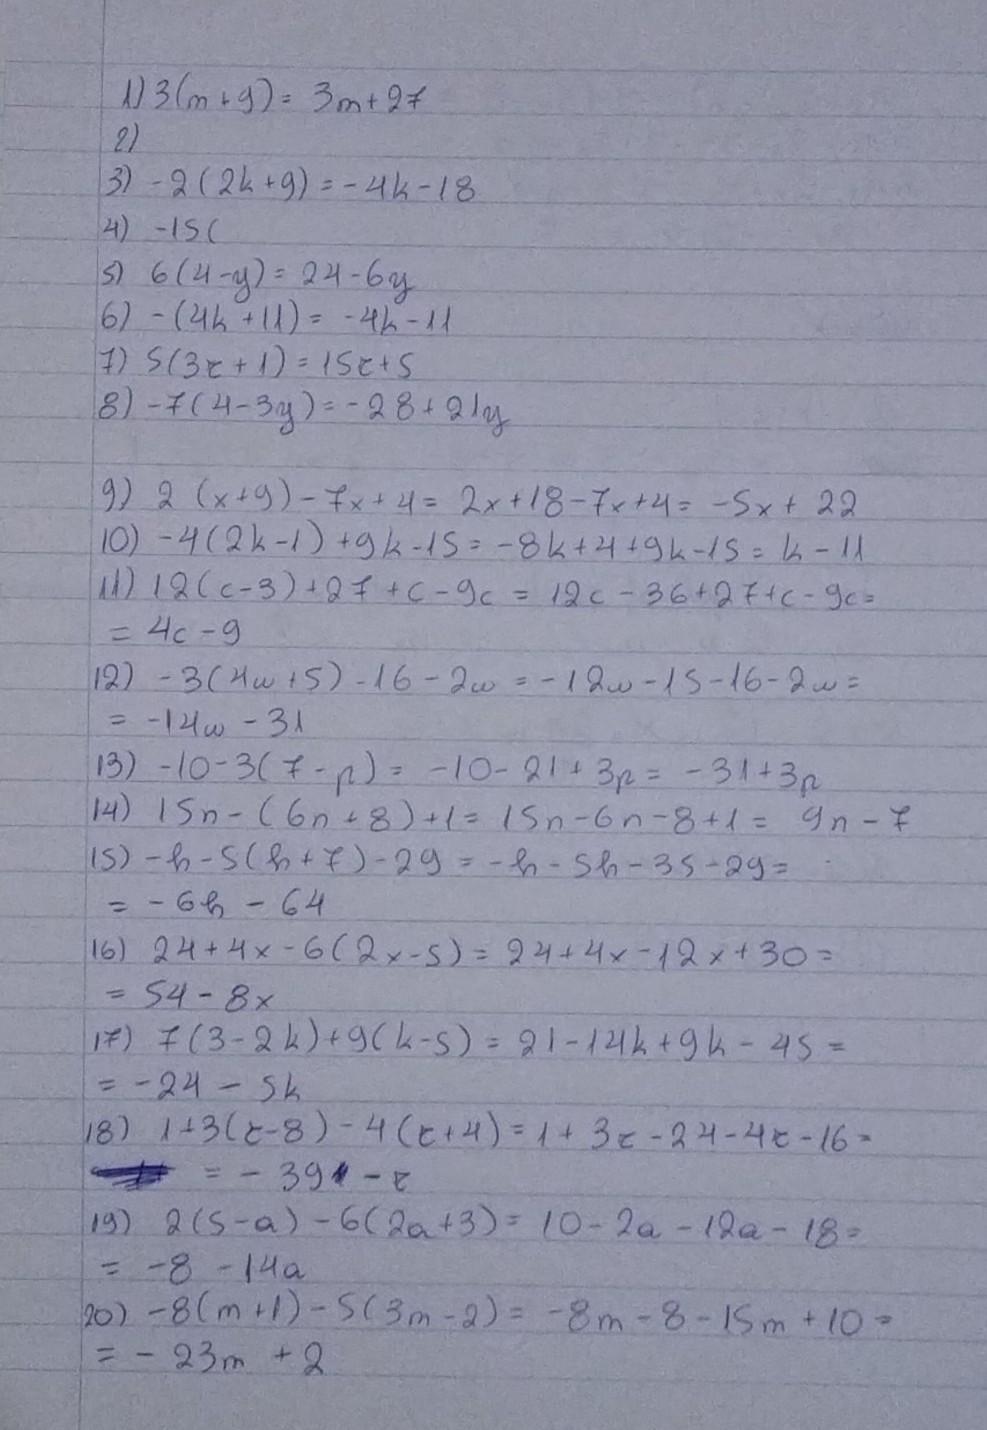 1) 3(m+9) = 3m+27
2)
3) -2(2k+9) = -4k-18
4) -15(
5) 6(4-y) = 24-6y
6) -(4k+11) = -4k-11
7) 5(3z+1) = 15z+5
8) -7(4-3y) = -28+21y
9) 2(x+9)-7x+4 = 2x+18-7x+4 = -5x+22
10) -4(2k-1)+9k-15 = -8k+4+9k-15 = k-11
11) 12(c-3)+27+c-9c = 12c-36+27+c-9c =
= 4c-9
12) -3(4w+5)-16-2w = -12w-15-16-2w =
= -14w-31
13) -10-3(7-p) = -10-21+3p = -31+3p
14) 15n-(6n+8)+1 = 15n-6n-8+1 = 9n-7
15) -h-5(h+7)-29 = -h-5h-35-29 =
= -6h-64
16) 24+4x-6(2x-5) = 24+4x-12x+30 =
= 54-8x
17) 7(3-2k)+9(k-5) = 21-14k+9k-45 =
= -24-5k
18) 1+3(z-8)-4(z+4) = 1+3z-24-4z-16 =
= -39-z
19) 2(5-a)-6(2a+3) = 10-2a-12a-18 =
= -8-14a
20) -8(m+1)-5(3m-2) = -8m-8-15m+10 =
= -23m+2